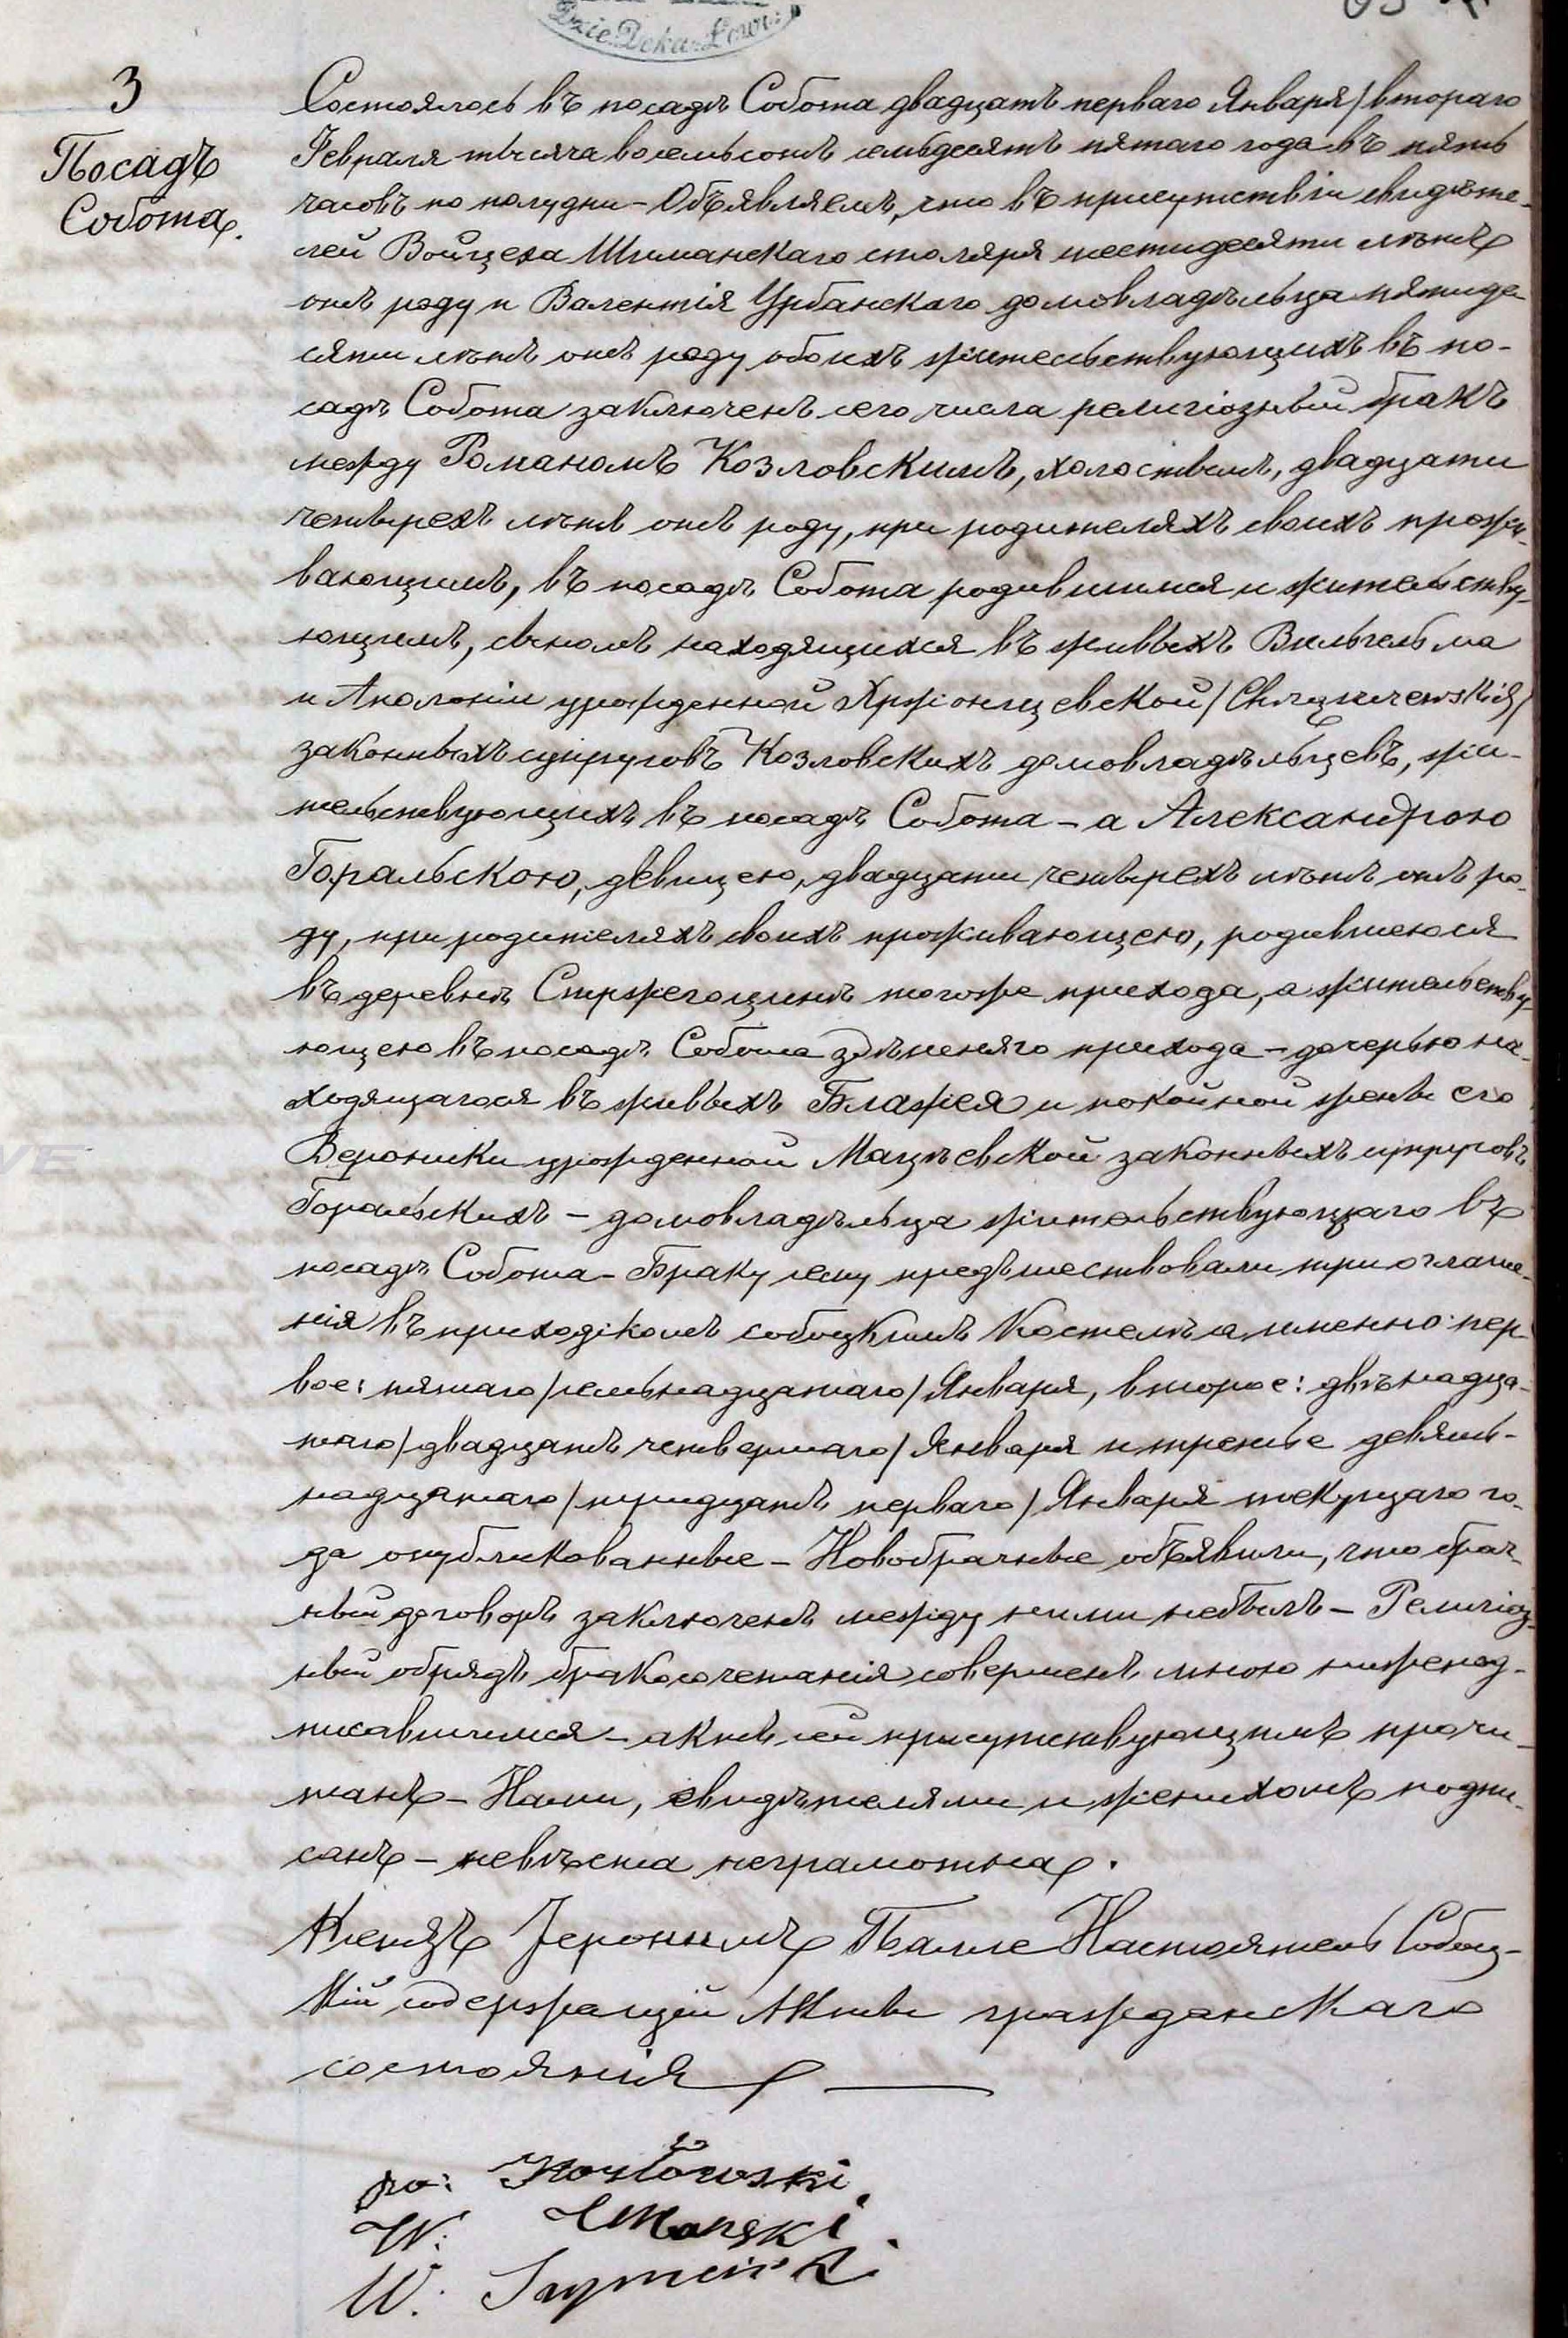 Dzie: Deka: Łowi:
3
Посадъ
Собота.
Состоялось въ посадѣ Собота двадцать перваго Января/втораго
Февраля тысяча восемьсотъ семьдесятъ пятаго года въ пять
часовъ по полудни – Объявляемъ, что въ присутствіи свидѣте-
лей Войцеха Шиманскаго столяря шестидесяти лѣтъ
отъ роду и Валентія Урбанскаго домовладѣльца пятиде-
сяти лѣтъ отъ роду обоихъ жительствующихъ въ по-
садѣ Собота заключенъ сего числа религіозный бракъ
между Романомъ Козловскимъ, холостымъ, двадцати
четырехъ лѣтъ отъ роду, при родителяхъ своихъ прожи-
вающимъ, въ посадѣ Собота родившимся и жительству-
ющимъ, сыномъ находящихся въ живыхъ Вильгельма
и Аполоніи урожденной Хржонщевской /
законныхъ супруговъ Козловскихъ домовладѣльцевъ, жи-
тельствующихъ въ посадѣ Собота – а Александрою
Горальскою, дѣвицею, двадцати четырехъ лѣтъ отъ ро-
ду, при родителяхъ своихъ проживающею, родившеюся
въ деревнѣ Стржегоцинѣ тогоже прихода, а жительству-
ющею въ посадѣ Собота здѣшняго прихода – дочерью на-
ходящагося въ живыхъ Блажея и покойной жены его
Вероники урожденной Мацѣевской законныхъ супруговъ
Горальскихъ – домовладѣльца жительствующаго въ
посадѣ Собота – Браку сему предшествовали три оглаше-
нія въ приходскомъ собоцкимъ Костелѣ а именно: пер-
вое: пятаго/семьнадцатаго/ Января, второе: двѣнадца-
таго/двадцать четвертаго/ Января и третье девять-
надцатаго/тридцать перваго/ Января текущаго го-
да опубликованные – Новобрачные объявили, что брач-
ный договоръ заключенъ между ними небылъ – Религіоз-
ный обрядъ бракосочетанія совершенъ мною нижепод-
писавшимся – актъ сей присутствующимъ прочи-
танъ – Нами, свидѣтелями и женихомъ подпи-
санъ – невѣста неграмотна.
Ксендзъ Іеронимъ Настоятель Собоц-
кій содержащій Акты гражданскаго
состоянія
Kozłowski
W:
W. Szymański